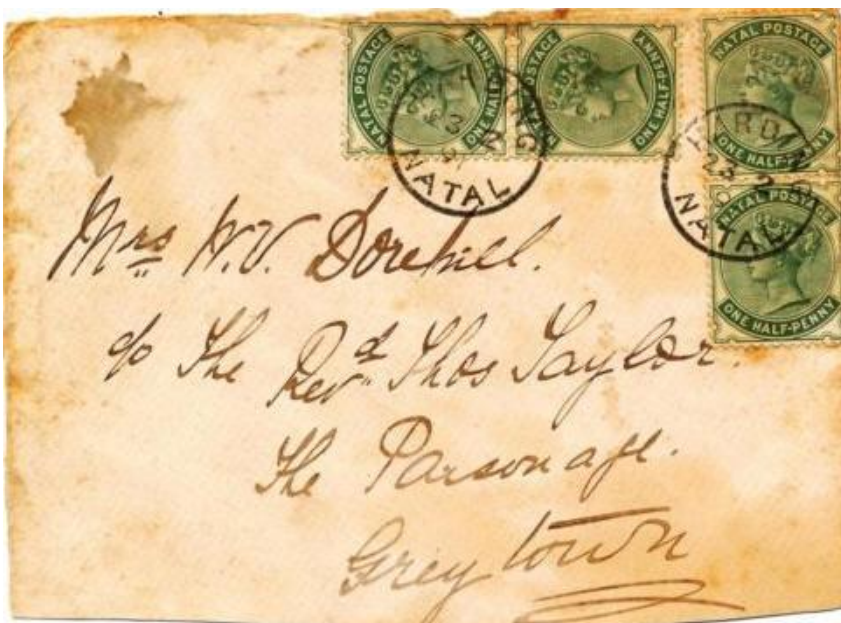 NATAL POSTAGE
ONE HALF-PENNY
NATAL POSTAGE
ONE HALF-PENNY
NATAL POSTAGE
ONE HALF-PENNY
NATAL POSTAGE
ONE HALF-PENNY
HARDING
NATAL
HARDING
23 2
NATAL
Mrs W.V. Dorehill.
c/o The Revd Thos Taylor.
The Parsonage.
Greytown